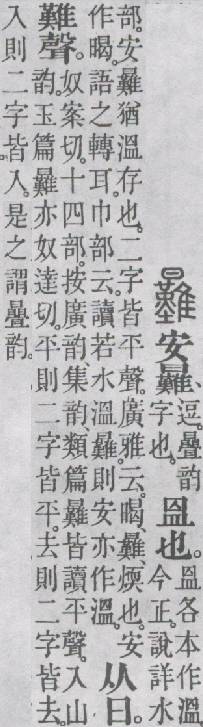 㬮安㬮、逗。疊韵字也。𥁕也。𥁕各本作溫今正。說詳水
部。安㬮猶溫存也。二字皆平聲。廣雅云。暍㬮、煗也。安作暍。語之轉耳。巾部云。讀若水溫㬮。則安亦作溫。从日。
難聲。奴案切。十四部。按廣韵、集韵、類篇㬮皆讀平聲。入山韵。玉篇㬮亦奴達切。平則二字皆平。去則二字皆去。
入則二字皆入。是之謂疊韵。